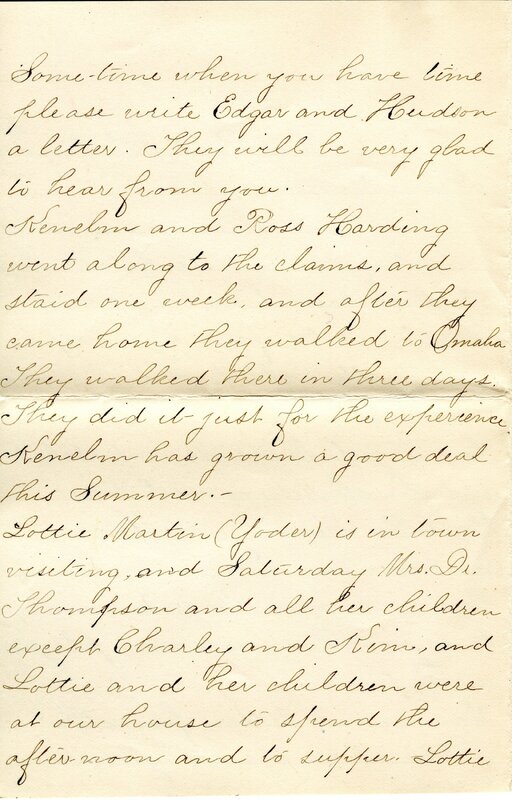 Some-time when you have time
please write Edgar and Hudson
a letter. They will be very glad
to hear from you.
Kenelm and Ross Harding
went along to the claims, and
staid one week, and after they
came home they walked to Omaha
They walked there in three days.
They did it just for the experience.
Kenelm has grown a good deal
this Summer.-
Lottie Martin (Yoder) is in town
visiting, and Saturday Mrs. Dr.
Thompson and all her children
except Charley and Kim, and
Lottie and her children were
at our house to spend the
after-noon and to supper. Lottie